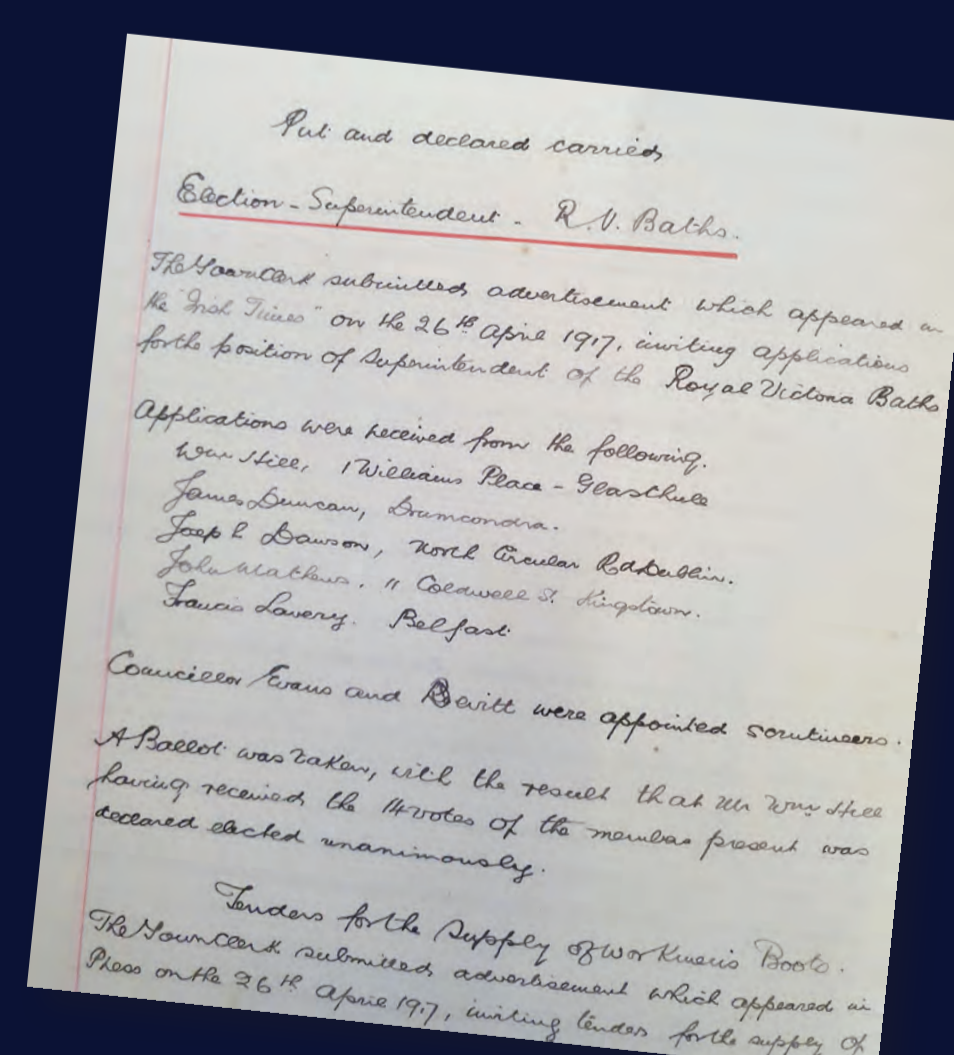 Put and declared carried
Election - Superintendent - R. V. Baths.
The Town Clerk submitted advertisement which appeared in
the "Irish Times" on the 26th April 1917, inviting applications
for the position of Superintendent of the Royal Victoria Baths
Applications were received from the following.
Wm Hill, 1 Williams Place - Glasthule
James Duncan, Drumcondra.
Joseph Dawson, North Circular Rd Dublin.
John Mathews. 11 Coldwell St. Kingstown.
Francis Lavery. Belfast.
Councillor Evans and Devitt were appointed scrutineers.
A Ballot was taken, with the result that Mr Wm Hill
having received the 14 votes of the members present was
declared elected unanimously.
Tenders for the Supply of Workmen's Boots.
The Town Clerk submitted advertisement which appeared in
Press on the 26th April 1917, inviting tenders for the supply of